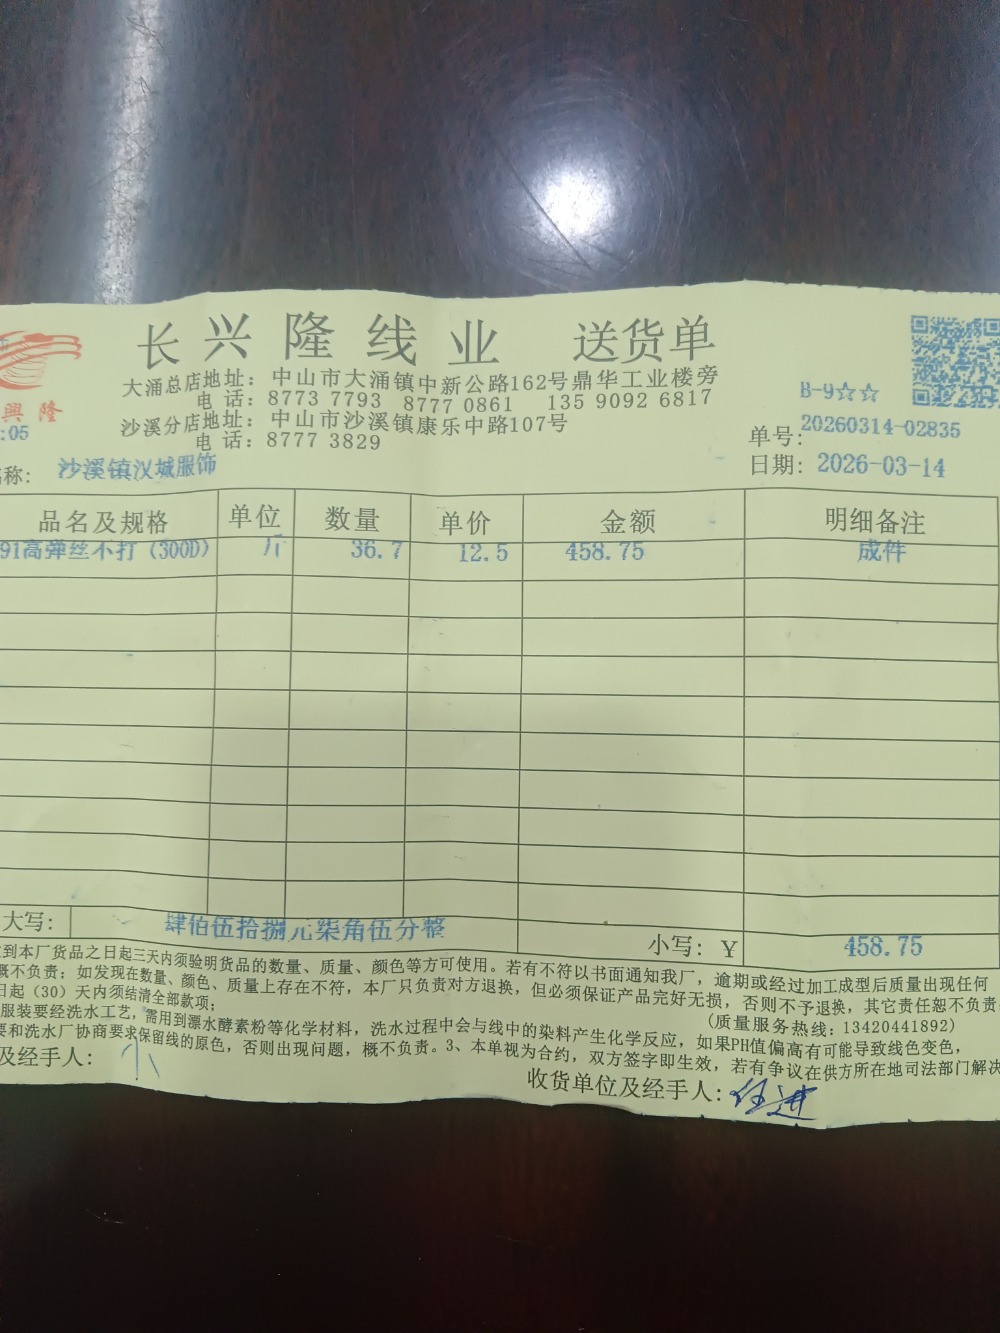 长兴隆线业 送货单
大涌总店地址：中山市大涌镇中新公路162号鼎华工业楼旁
电话：8773 7793 8777 0861 135 9092 6817
沙溪分店地址：中山市沙溪镇康乐中路107号
电话：8777 3829
興隆
:05
B-9☆☆
单号：20260314-02835
日期：2026-03-14
称：沙溪镇汉城服饰
品名及规格 单位 数量 单价 金额 明细备注
91高弹丝不打（300D） 斤 36.7 12.5 458.75 成件
大写：肆佰伍拾捌元柒角伍分整 小写：¥ 458.75
到本厂货品之日起三天内须验明货品的数量、质量、颜色等方可使用。若有不符以书面通知我厂，逾期或经过加工成型后质量出现任何
概不负责；如发现在数量、颜色、质量上存在不符，本厂只负责对方退换，但必须保证产品完好无损，否则不予退换，其它责任恕不负责
日起（30）天内须结清全部款项；
（质量服务热线：13420441892）
服装要经洗水工艺，需用到漂水酵素粉等化学材料，洗水过程中会与线中的染料产生化学反应，如果PH值偏高有可能导致线色变色，
要和洗水厂协商要求保留线的原色，否则出现问题，概不负责。3、本单视为合约，双方签字即生效，若有争议在供方所在地司法部门解决
及经手人：
收货单位及经手人：